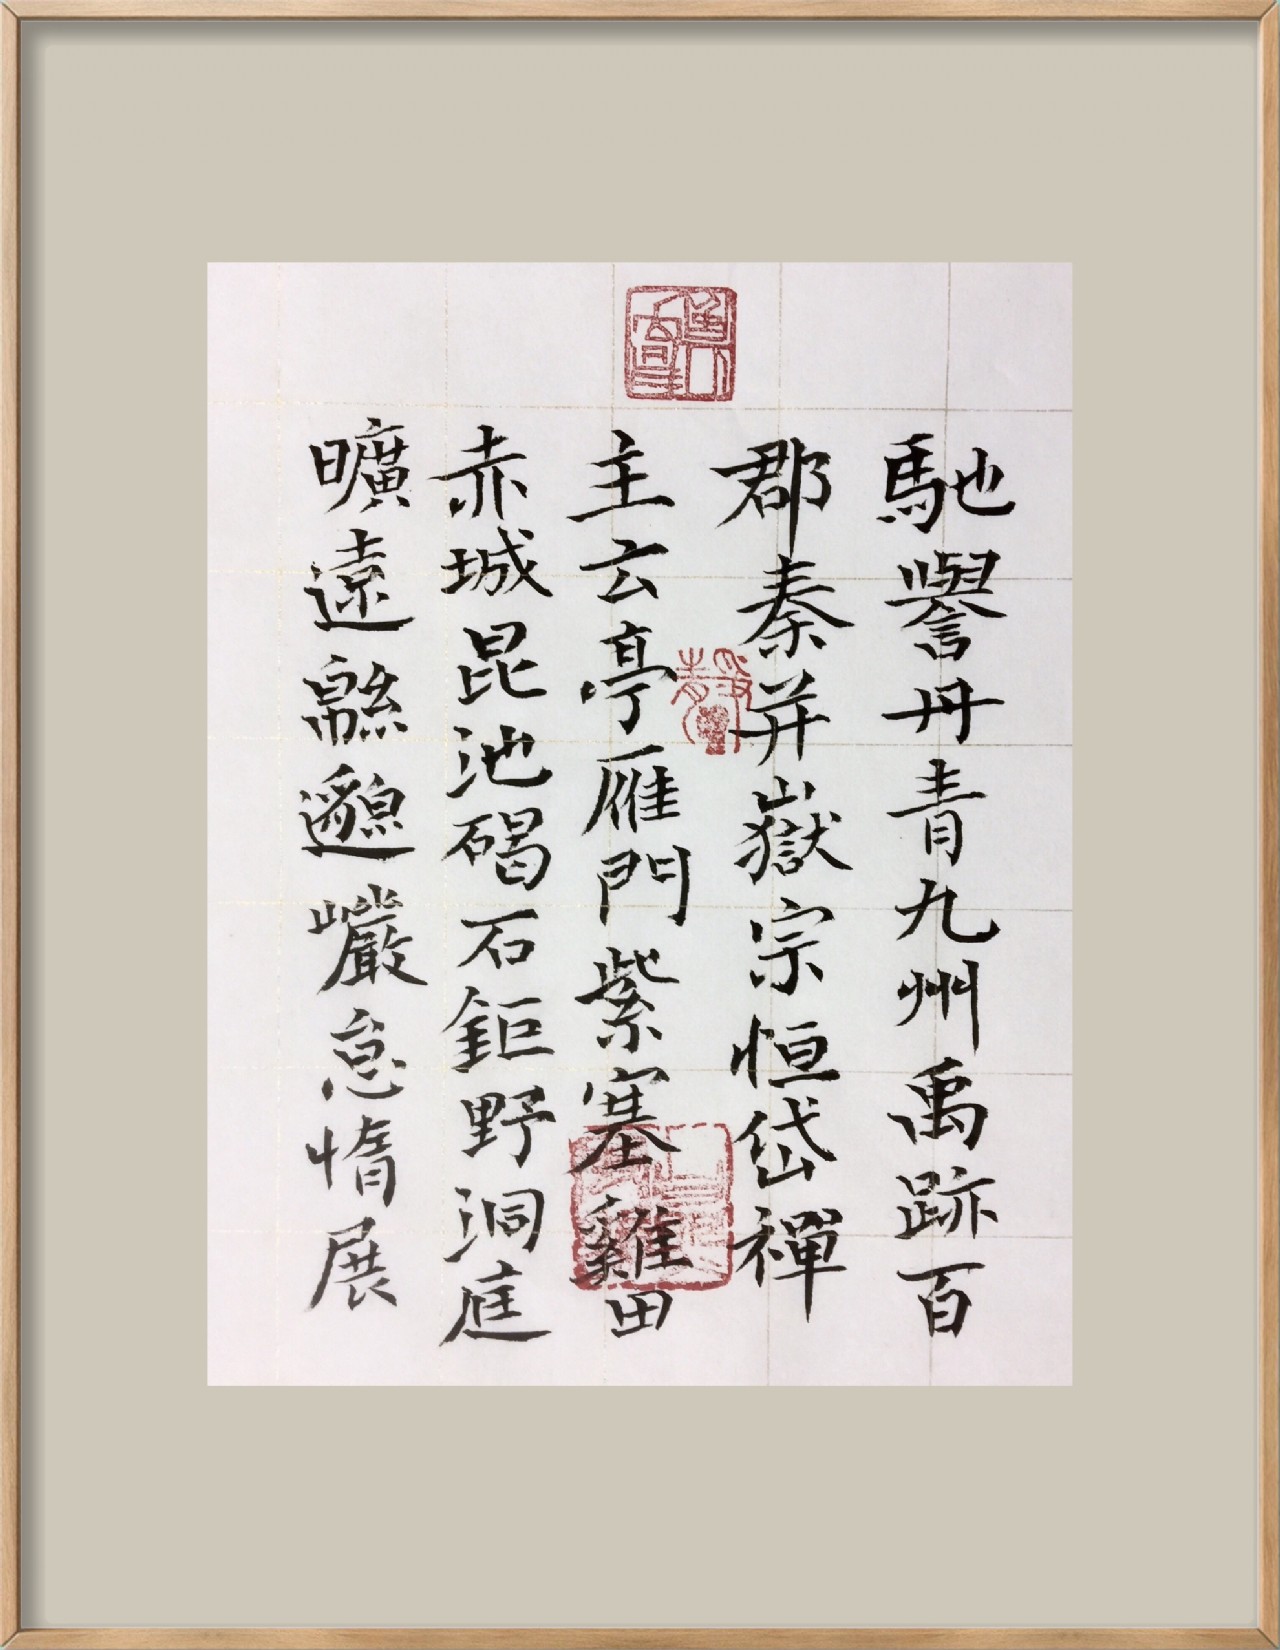 馳譽丹青九州禹跡百
郡秦并嶽宗恒岱禪
主云亭雁門紫塞雞田
赤城昆池碣石鉅野洞庭
曠遠緜邈巖怠惰展